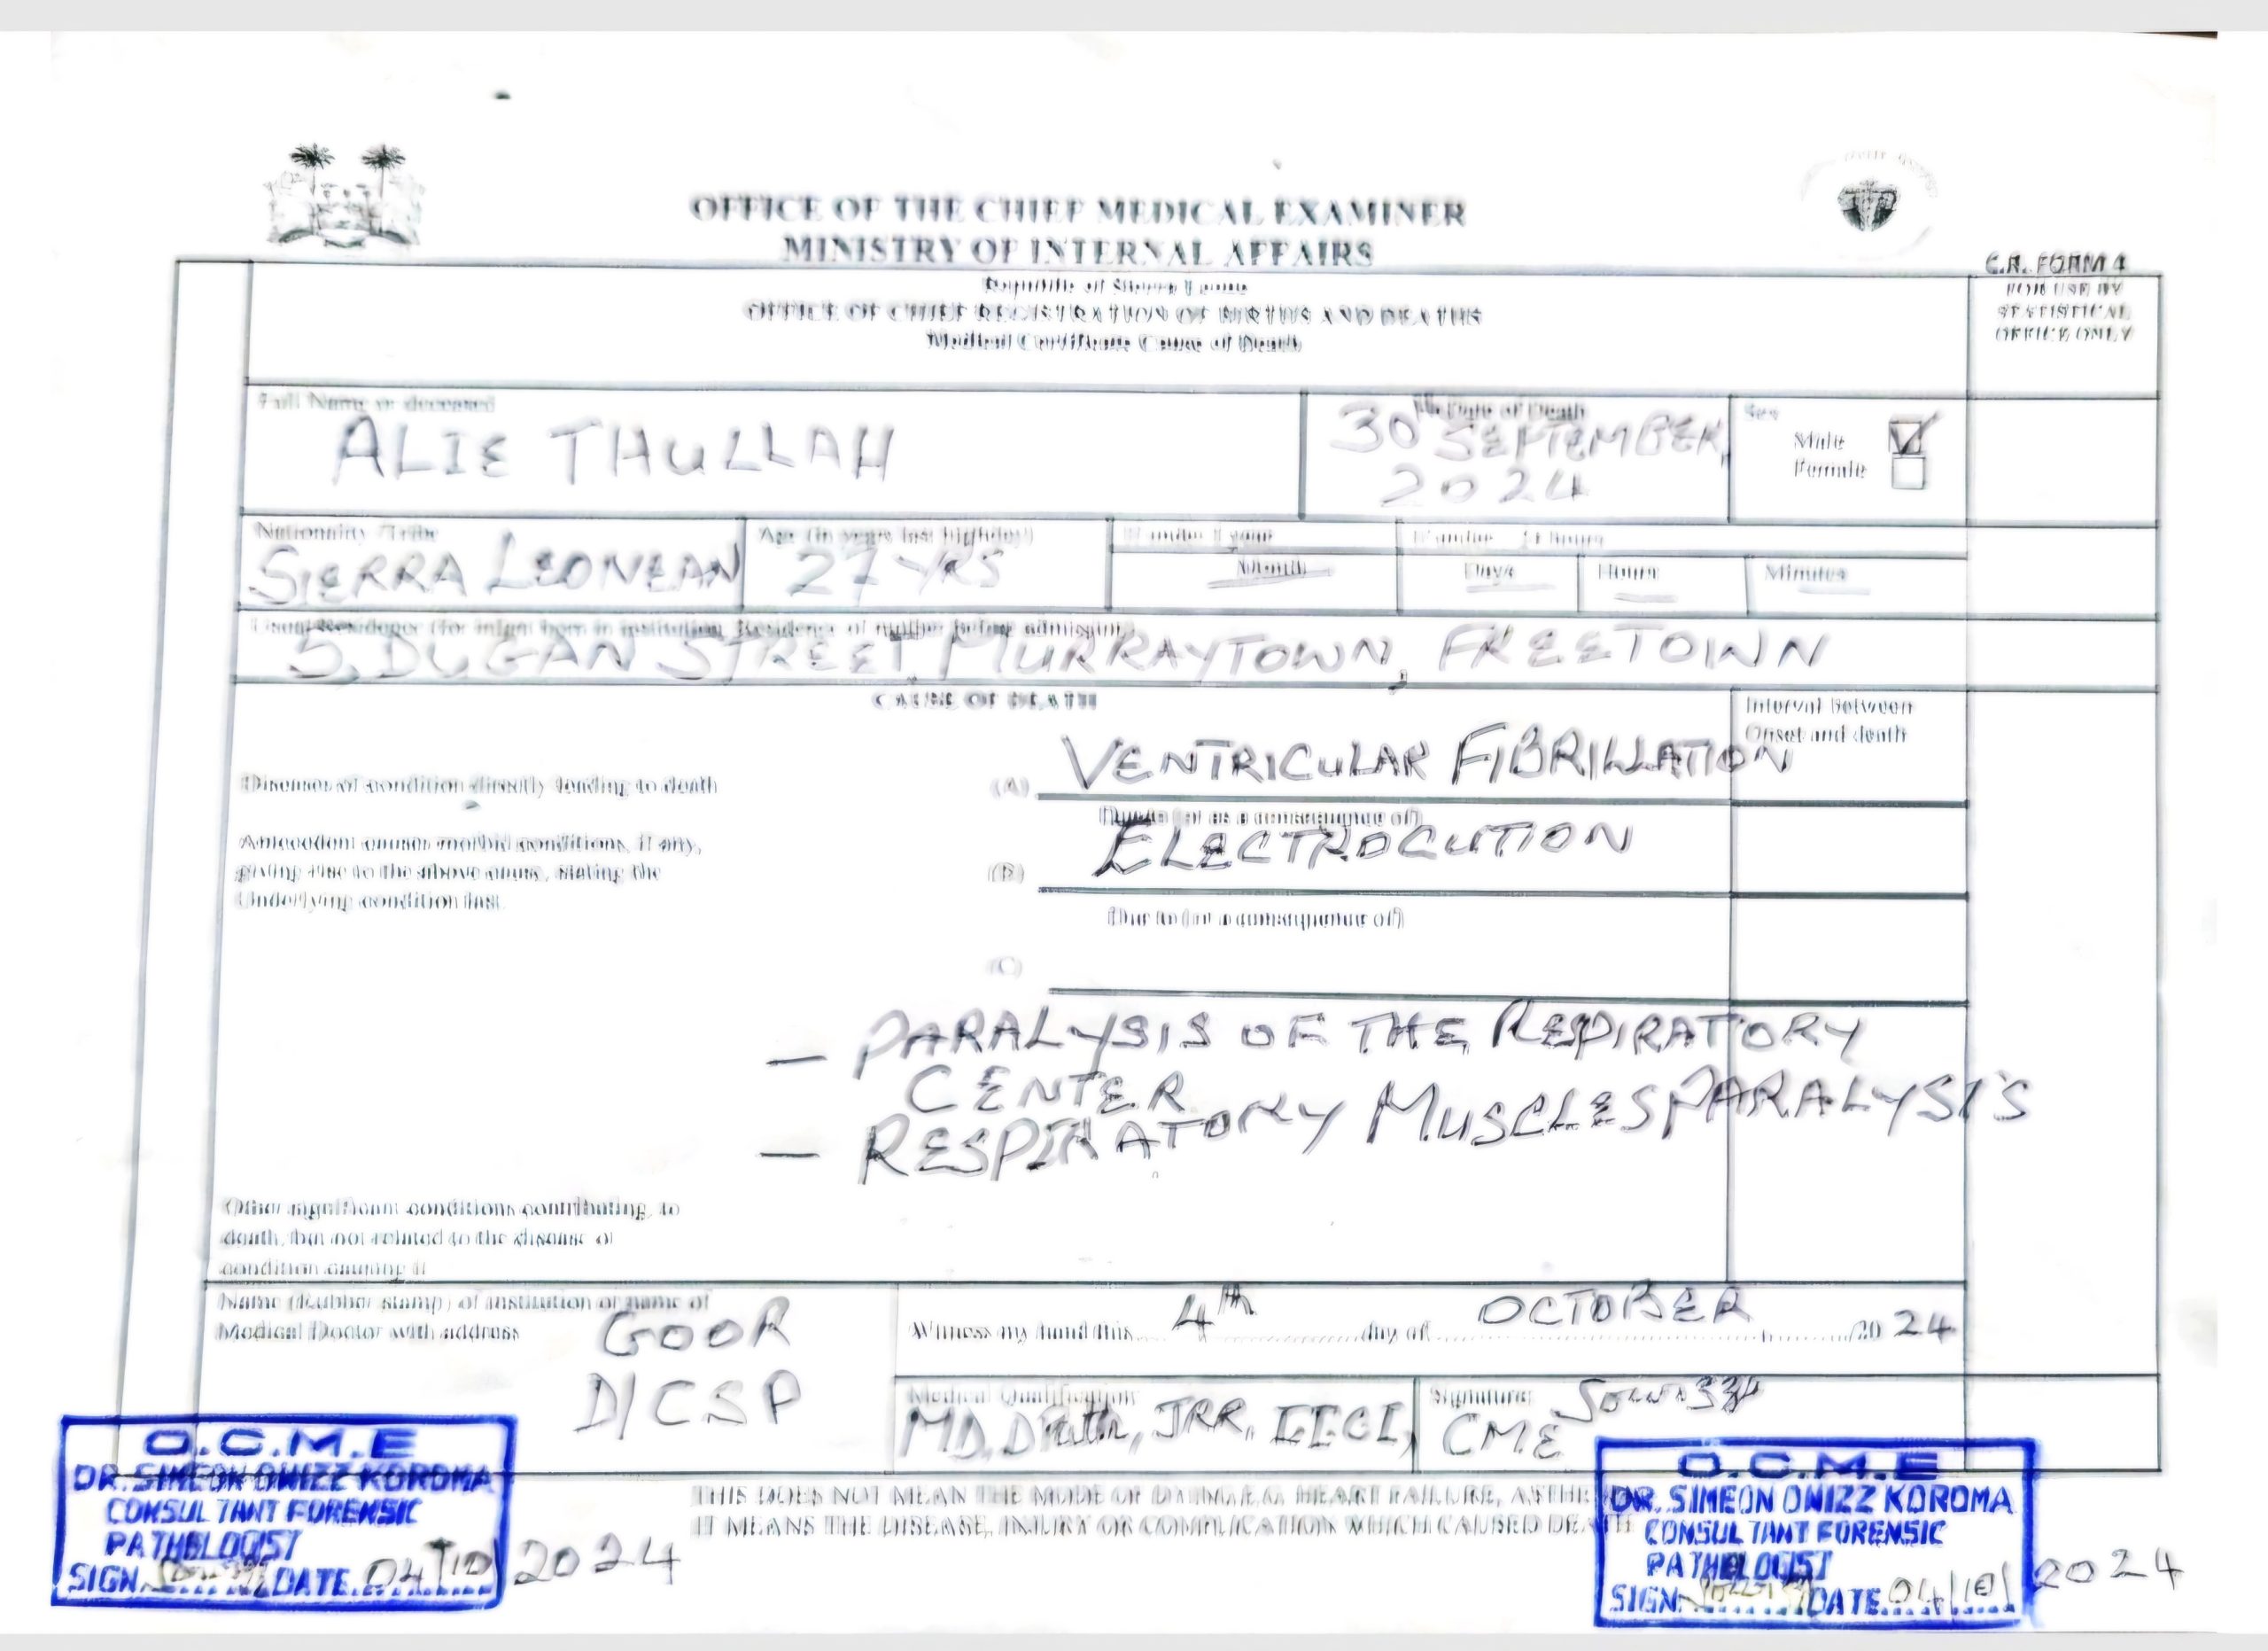 OFFICE OF THE CHIEF MEDICAL EXAMINER
MINISTRY OF INTERNAL AFFAIRS
C.R. FORM 4
Republic of Sierra Leone
OFFICE OF CHIEF REGISTRATION OF BIRTHS AND DEATHS
Medical Certificate Cause of Death
FOR USE BY
STATISTICAL
OFFICE ONLY
Full Name or deceased
ALIE THULLAH
Date of Death
30th SEPTEMBER,
2024
Sex
Male
Female
Nationality /Tribe
SIERRA LEONEAN
Age (In years last birthday)
27 YRS
If under 1 year
Month
If under 24 hours
Days
Hours
Minutes
Usual Residence (for infant born in institution, Residence of mother before admission)
5, DUGAN STREET, MURRAYTOWN, FREETOWN
CAUSE OF DEATH
Interval Between
Onset and death
Disease of condition directly leading to death
(A) VENTRICULAR FIBRILLATION
Due to (or as a consequence of)
Antecedent causes morbid conditions, if any,
giving rise to the above cause, stating the
Underlying condition last.
(B) ELECTROCUTION
Due to (or a consequence of)
(C)
— PARALYSIS OF THE RESPIRATORY
CENTER
— RESPIRATORY MUSCLES PARALYSIS
Other significant conditions contributing to
death, but not related to the disease or
condition causing it
Name (Rubber stamp) of institution or name of
Medical Doctor with address
GOOR
D/CSP
Witness my hand this 4th day of OCTOBER 20 24
Medical Qualification
MD, DPath, JRR,
Signature
CME
O.C.M.E
DR. SIMEON OWIZZ KOROMA
CONSULTANT FORENSIC
PATHOLOGIST
SIGN DATE 04/10/2024
THIS DOES NOT MEAN THE MODE OF DYING E.G. HEART FAILURE, ASTHE
IT MEANS THE DISEASE, INJURY OR COMPLICATION WHICH CAUSED DEATH
O.C.M.E
DR. SIMEON OWIZZ KOROMA
CONSULTANT FORENSIC
PATHOLOGIST
SIGN DATE 04/10/2024